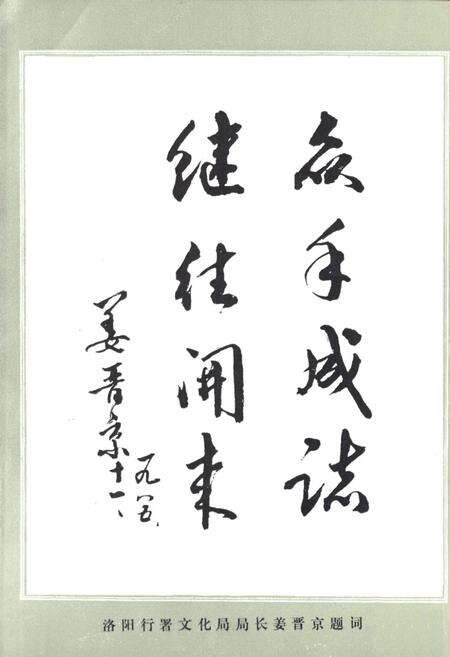 众手成誌
继往開来
姜晋京
一九八五、
十一、
洛阳行署文化局局长姜晋京题词